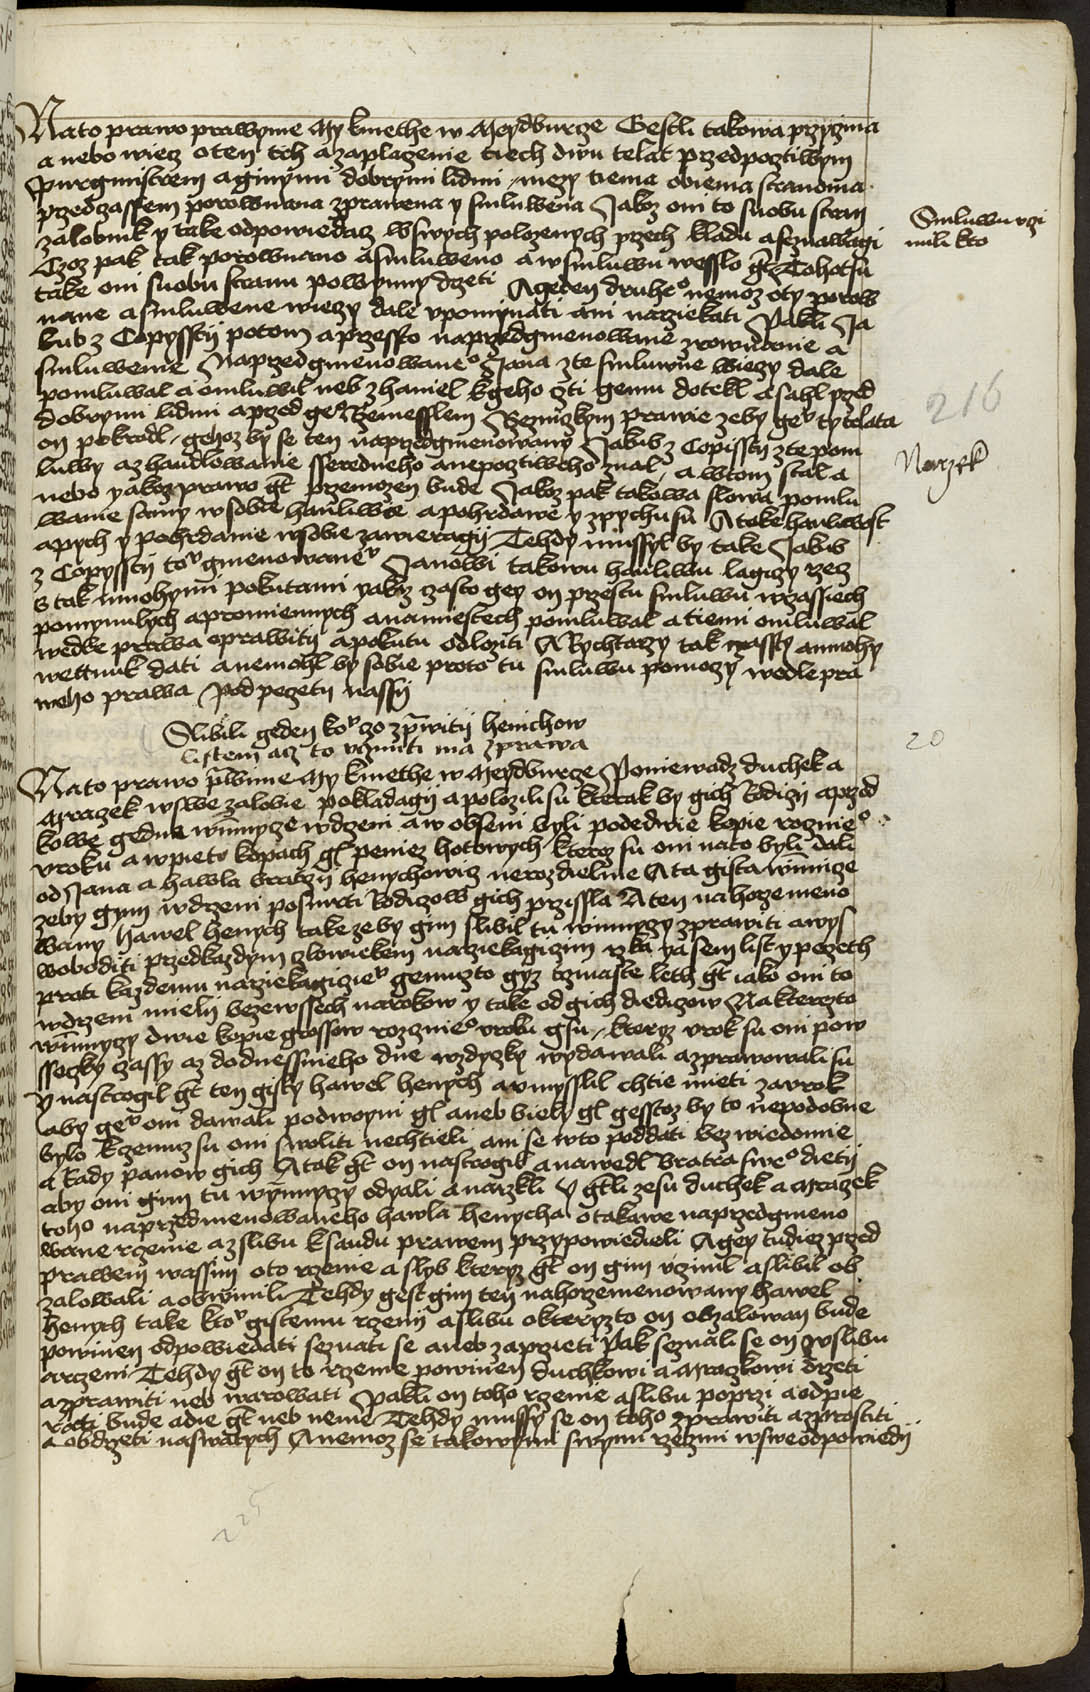 Na to prawo prawyme My kmethe w Meydburcze Gestli takowa przyzina
a nebo wiecz o ten trh a zaplaczenie tiech dwu telat przed pocztiwym
Purgmistrem a ginymi dobrymi lidmi mezy tiema obiema stranoma
przedczassem porownana zprawena y smluwena Jakoz oni to s uobu stran
zalobnik y take odpowiedacz w swych polozenych przech kladu a seznawagi
Czoz pak tak porownano a smluweno a w smluwu wesslo gt Tohot su
take oni s uobu stranu powynny drzeti A geden druheo nemoz o ty porow
nane a smluwene wieczy dale vpominati ani narziekati Pakli Ja
kub z Copyssty potom a przesto naprzedgmenowane zrownanie a
smluwenie Naprzedgmenowaneo Jana z te smluwne wieczy dale
pomluwal a omluwil neb zhaniel k geho czti gemu dotekl a sahl przed
dobrymi lidmi a przed geo Remesslem Rzeniczkym prawie zeby geo ty telata
on pokradl gehoz by se ten naprzedgmenowany Jakub z Copissty z te pom
luwy a z handlowanie sseredneho a nepocztiweho znal a w tom stal a
nebo yakoz prawo gt przemozen bude Jakoz pak takowa slowa pomlu
wanie samy w sobie hanliwe a pohrdawe y z pychu su A take hanliwost
a pych y pohrdanie w sobie zawieragij Tehdy mussyl by take Jakub
z Copyssty too gmenowaneo Janowi takowu hanliwu lagiczy rzecz
s tak mnohymi pokutami yakz czasto gey on przes tu smluwu w czassiech
pomynulych a promiennych a na miestech pomluwal a tiemi omluwal
wedle prawa oprawiti a pokutu odloziti A Rychtarzy tak czasty a mnohy
wettnuk dati a nemohl by sobie proto tu smluwu pomoczy wedle pra
weho prawa Pod peczeti nassij
Smluwu vczi
nili kto
216
Narzek
Slibili geden koo czo zprawiti henichow
listem acz to vcziniti ma z prawa
20
Na to prawo prawime My kmethe w Meydburcze Poniewadz duchek a
Mraczek w swe zalobie pokladagij a polozili su kterak by gich Rodiczy a przed
kowe gednu winnycze w drzeni a w obseni byli pode dwie kopie roczneo
vroku a w pieti kopach gl peniez hotowych kterez su oni na to byli dali
od Jana a hawla bratrzy henychowicz nerozdielne A ta gista winnicze
zeby gym w drzeni po smrti Rodiczow gich przissla A ten nahorzemeno
wany Hawel henych take zeby gim slibil tu winnyczy zprawiti a wys
woboditi przed kazdym czlowiekem narziekagiczim rzka ya sem list y peczeth
proti kazdemu narziekagiczieo gemuzto gyz trznaste leth gt iako oni to
w drzeni mieli beze wssech narokow y take od gich diediczow Na kterezto
winnyczy dwie kopie grossow roczneo vroku gsu kteryz vrok su oni pow
sseczky czassy az do dnessnieho dne wzdyczky wydawali a zprawowali su
y nastrogil gt ten gisty hawel henych a vmysslil chtie mieti za vrok
aby geo oni dawali podwoyni gl aneb biely gl gesstoz by to nepodobne
bylo k czemuz su oni swoliti nechtieli ani se w to poddati bez wiedomie
a Rady panow gich A tak gt on nastrogil a nawedl bratra sweo dieti
aby oni gim tu wynnyczy odyali a narzkli y gtli ze su duchek a Mraczek
toho naprzedmenowaneho hawla henycha o takowe naprzedgmeno
wane rczenie a z slibu k saudu prawem przypowiedieli A gey tudiez przed
prawem wassim o to rczenie a slyb kteryz gt on gim vczinil a slibil ob
zalowali a obwinili Tehdy gest gim ten nahorzemenowany hawel
henych take k too gistemu rczenij a slibu o kteryzto on obzalowan bude
powinen odpowiedati seznati se aneb zaprzieti Pak seznali se on w slibu
a rczeni Tehdy gt on to rczenie powinen duchkowi a Mraczkowi drzeti
a zprawiti neb warowati Pakli on toho rczenie a slibu poprzi a odpie
rati bude a die gl neb nenie Tehdy mussy se on toho zprawiti a zprostiti
a obdrzeti na swatych A nemoz se takowymi swymi rzeczmi w swe odpowiedij
225